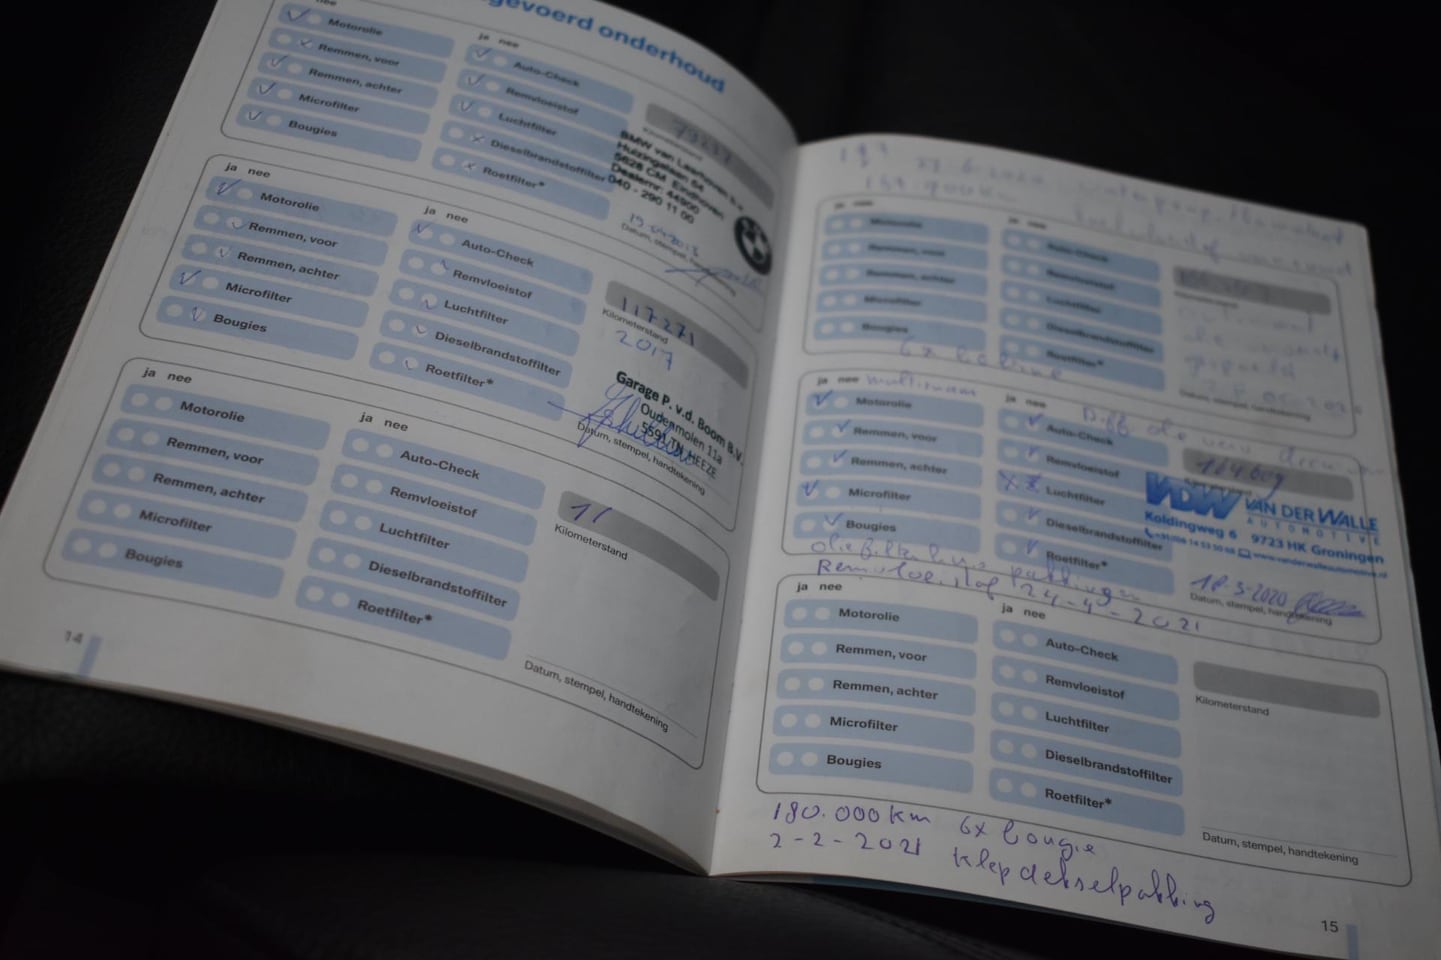 gevoerd onderhoud
nee
Motorolie
Remmen, voor
Remmen, achter
Microfilter
Bougies
ja nee
Auto-Check
Remvloeistof
Luchtfilter
Dieselbrandstoffilter
Roetfilter*
79237
BMW van Laarhoven b.v.
Huizingalaan 64
5628 CM Eindhoven
Dealernr: 44900
040 - 290 11 00
Datum, stempel,
ja nee
Motorolie
Remmen, voor
Remmen, achter
Microfilter
Bougies
ja nee
Auto-Check
Remvloeistof
Luchtfilter
Dieselbrandstoffilter
Roetfilter*
117271
Kilometerstand
2017
Garage P. v.d. Boom B.V.
Oudenmolen 11a
5591 TN HEEZE
Datum, stempel, handtekening
ja nee
Motorolie
Remmen, voor
Remmen, achter
Microfilter
Bougies
ja nee
Auto-Check
Remvloeistof
Luchtfilter
Dieselbrandstoffilter
Roetfilter*
Kilometerstand
Datum, stempel, handtekening
14
ja nee
Motorolie
Remmen, voor
Remmen, achter
Microfilter
Bougies
ja nee
Auto-Check
Remvloeistof
Luchtfilter
Dieselbrandstoffilter
Roetfilter*
Kilometerstand
Datum, stempel, handtekening
6x bobine
ja nee
Motorolie
Remmen, voor
Remmen, achter
Microfilter
Bougies
ja nee
Auto-Check
Remvloeistof
Luchtfilter
Dieselbrandstoffilter
Roetfilter*
164609
VDW VAN DER WALLE
AUTOMOTIVE
Koldingweg 6 9723 HK Groningen
www.vanderwalleautomotive.nl
18-3-2020
Datum, stempel, handtekening
oliefilterhuis pakkingen
Remvloeistof 24-4-2021
ja nee
Motorolie
Remmen, voor
Remmen, achter
Microfilter
Bougies
ja nee
Auto-Check
Remvloeistof
Luchtfilter
Dieselbrandstoffilter
Roetfilter*
Kilometerstand
Datum, stempel, handtekening
180.000km 6x bougie
2-2-2021 klependekselpakking
15